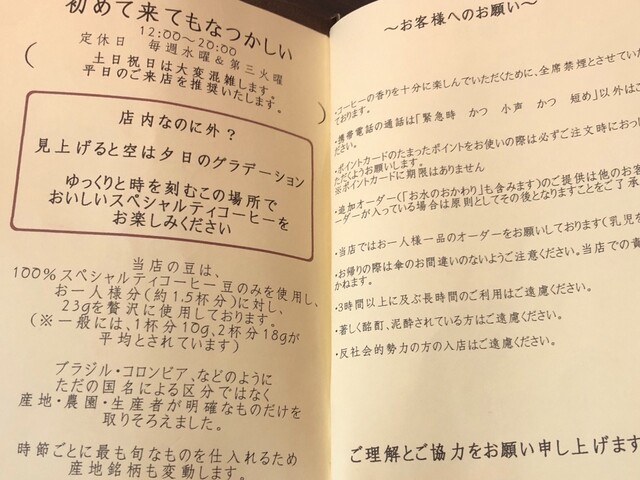 初めて来てもなつかしい
12:00～20:00
定休日 毎週水曜&第三火曜
( 土日祝日は大変混雑します。
平日のご来店を推奨いたします。 )
店内なのに外?
見上げると空は夕日のグラデーション
ゆっくりと時を刻むこの場所で
おいしいスペシャルティコーヒーを
お楽しみください
当店の豆は、
100%スペシャルティコーヒー豆のみを使用し、
お一人様分(約1.5杯分)に対し、
23gを贅沢に使用しております。
(※一般には、1杯分10g,2杯分18gが
平均とされています)
ブラジル・コロンビア、などのように
ただの国名による区分ではなく
産地・農園・生産者が明確なものだけを
取りそろえました。
時節ごとに最も旬なものを仕入れるため
産地銘柄も変動します。
～お客様へのお願い～
・コーヒーの香りを十分に楽しんでいただくために、全席禁煙とさせていた
ております。
・携帯電話の通話は「緊急時 かつ 小声 かつ 短め」以外はご
ださい。
・ポイントカードのたまったポイントをお使いの際は必ずご注文時におっし
ただくようお願いします。
※ポイントカードに期限はありません
・追加オーダー(「お水のおかわり」も含みます)のご提供は他のお客
ーダーが入っている場合は原則としてその後となりますことをご了承
・当店ではお一人様一品のオーダーをお願いしております(乳児を
・お帰りの際は傘のお間違いのないようご注意ください。当店での責
かねます。
・3時間以上に及ぶ長時間のご利用はご遠慮ください。
・著しく酩酊、泥酔されている方はご遠慮ください。
・反社会的勢力の方の入店はご遠慮ください。
ご理解とご協力をお願い申し上げます